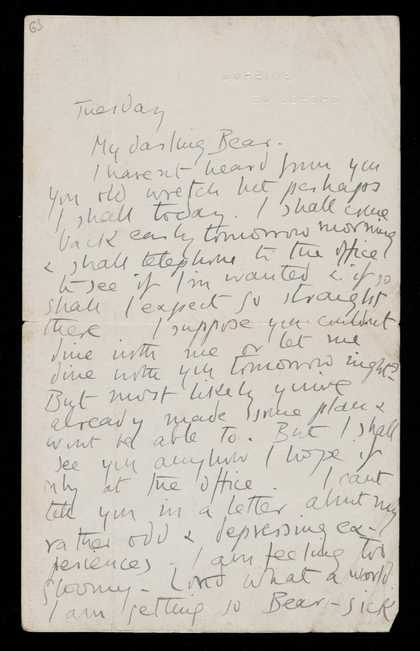 63
Tuesday
My darling Bear.
I havent heard from you
you old wretch but perhaps
I shall today. I shall come
back early tomorrow morning
& shall telephone to the office
to see if I'm wanted & if so
shall I expect go straight
there I suppose you couldnt
dine with me or let me
dine with you tomorrow night?
But most likely youve
already made some plan &
wont be able to. But I shall
see you anyhow I hope if
only at the office. I cant
tell you in a letter about my
rather odd & depressing ex-
periences - I am feeling too
gloomy - Lord what a world.
I am getting so Bear-sick